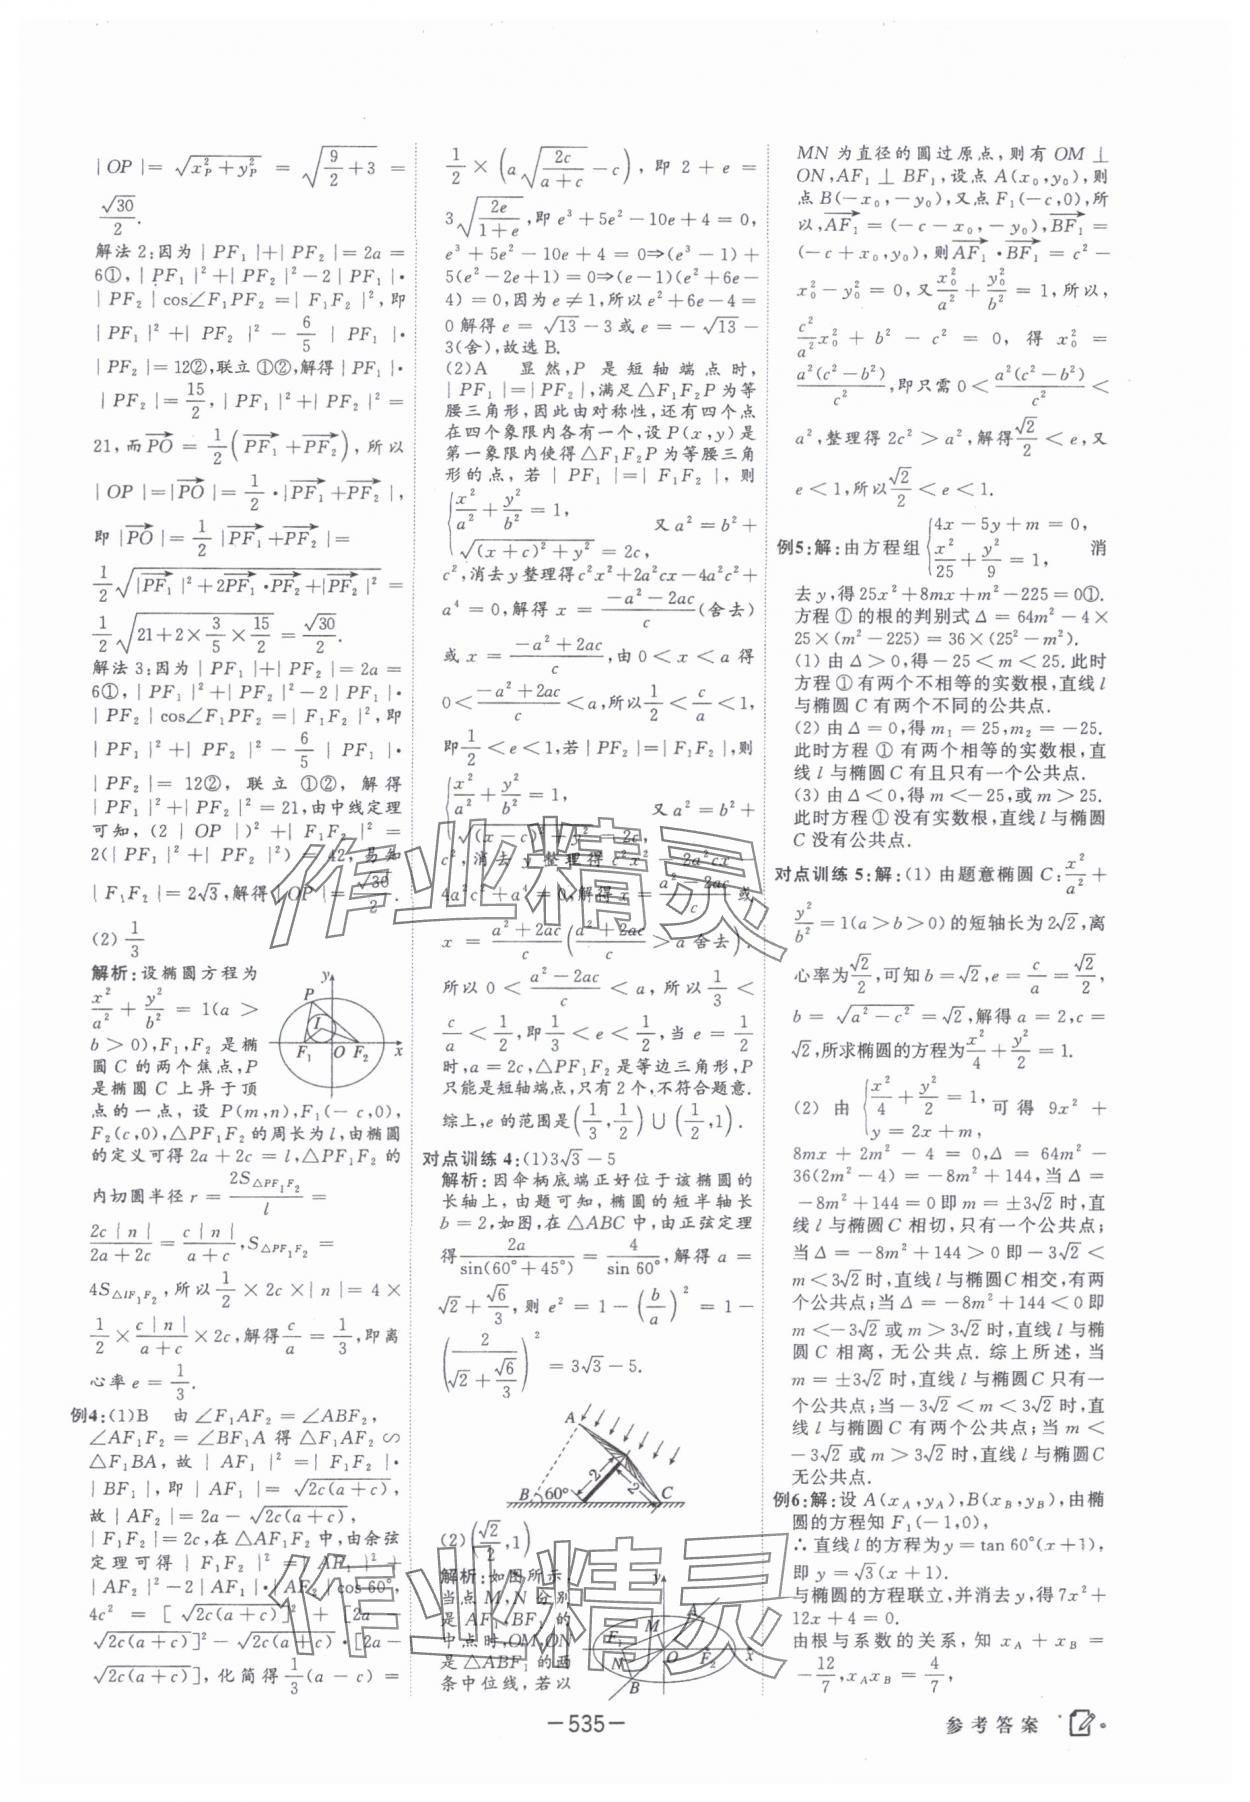 |OP|=√(x_P²+y_P²) = √(9/2+3) =
√30/2.
解法2:因为|PF₁|+|PF₂|=2a=
6①,|PF₁|²+|PF₂|²-2|PF₁|·
|PF₂|cos∠F₁PF₂=|F₁F₂|²,即
|PF₁|²+|PF₂|²-6/5|PF₁|·
|PF₂|=12②,联立①②,解得|PF₁|·
|PF₂|=15/2,|PF₁|²+|PF₂|²=
21,而PO→=1/2(PF₁→+PF₂→),所以
|OP|=|PO→|=1/2·|PF₁→+PF₂→|,
即|PO→|=1/2|PF₁→+PF₂→|=
1/2√(|PF₁→|²+2PF₁→·PF₂→+|PF₂→|²)=
1/2√(21+2×3/5×15/2)=√30/2.
解法3:因为|PF₁|+|PF₂|=2a=
6①,|PF₁|²+|PF₂|²-2|PF₁|·
|PF₂|cos∠F₁PF₂=|F₁F₂|²,即
|PF₁|²+|PF₂|²-6/5|PF₁|·
|PF₂|=12②,联立①②,解得
|PF₁|²+|PF₂|²=21,由中线定理
可知,(2|OP|)²+|F₁F₂|²=
2(|PF₁|²+|PF₂|²)=42,易知
|F₁F₂|=2√3,解得|OP|=√30/2.
(2)1/3
解析:设椭圆方程为
x²/a²+y²/b²=1(a>
b>0),F₁,F₂是椭
圆C的两个焦点,P
是椭圆C上异于顶
点的一点,设P(m,n),F₁(-c,0),
F₂(c,0),△PF₁F₂的周长为l,由椭圆
的定义可得2a+2c=l,△PF₁F₂的
内切圆半径r=2S△PF₁F₂/l=
2c|n|/(2a+2c)=c|n|/(a+c),S△PF₁F₂=
4S△IF₁F₂,所以1/2×2c×|n|=4×
1/2×c|n|/(a+c)×2c,解得c/a=1/3,即离
心率e=1/3.
例4:(1)B 由∠F₁AF₂=∠ABF₂,
∠AF₁F₂=∠BF₁A得△F₁AF₂∽
△F₁BA,故|AF₁|²=|F₁F₂|·
|BF₁|,即|AF₁|=√(2c(a+c)),
故|AF₂|=2a-√(2c(a+c)),
|F₁F₂|=2c,在△AF₁F₂中,由余弦
定理可得|F₁F₂|²=|AF₁|²+
|AF₂|²-2|AF₁|·|AF₂|cos60°,
4c²=[√(2c(a+c))]²+[2a-
√(2c(a+c))]²-√(2c(a+c))·[2a-
√(2c(a+c))],化简得1/3(a-c)=
1/2×(a√(2c/(a+c))-c),即2+e=
3√(2e/(1+e)),即e³+5e²-10e+4=0,
e³+5e²-10e+4=0⇒(e³-1)+
5(e²-2e+1)=0⇒(e-1)(e²+6e-
4)=0,因为e≠1,所以e²+6e-4=
0解得e=√13-3或e=-√13-
3(舍),故选B.
(2)A 显然,P是短轴端点时,
|PF₁|=|PF₂|,满足△F₁F₂P为等
腰三角形,因此由对称性,还有四个点
在四个象限内各有一个,设P(x,y)是
第一象限内使得△F₁F₂P为等腰三角
形的点,若|PF₁|=|F₁F₂|,则
{x²/a²+y²/b²=1,
√((x+c)²+y²)=2c, 又a²=b²+
c²,消去y整理得c²x²+2a²cx-4a²c²+
a⁴=0,解得x=(-a²-2ac)/c(舍去)
或x=(-a²+2ac)/c,由0<x<a得
0<(-a²+2ac)/c<a,所以1/2<c/a<1,
即1/2<e<1,若|PF₂|=|F₁F₂|,则
{x²/a²+y²/b²=1,
√((x-c)²+y²)=2c, 又a²=b²+
c²,消去y整理得c²x²-2a²cx-
4a²c²+a⁴=0,解得x=(a²-2ac)/c或
x=(a²+2ac)/c((a²+2ac)/c>a舍去),
所以0<(a²-2ac)/c<a,所以1/3<
c/a<1/2,即1/3<e<1/2,当e=1/2
时,a=2c,△PF₁F₂是等边三角形,P
只能是短轴端点,只有2个,不符合题意.
综上,e的范围是(1/3,1/2)∪(1/2,1).
对点训练4:(1)3√3-5
解析:因伞柄底端正好位于该椭圆的
长轴上,由题可知,椭圆的短半轴长
b=2,如图,在△ABC中,由正弦定理
得2a/sin(60°+45°)=4/sin60°,解得a=
√2+√6/3,则e²=1-(b/a)²=1-
(2/(√2+√6/3))²=3√3-5.
A 2 2 B 60° C
(2)(√2/2,1)
解析:如图所示,
当点M,N分别
是AF₁,BF₁的
中点时,OM,ON
是△ABF₁的两
条中位线,若以
MN为直径的圆过原点,则有OM⊥
ON,AF₁⊥BF₁,设点A(x₀,y₀),则
点B(-x₀,-y₀),又点F₁(-c,0),所
以,AF₁→=(-c-x₀,-y₀),BF₁→=
(-c+x₀,y₀),则AF₁→·BF₁→=c²-
x₀²-y₀²=0,又x₀²/a²+y₀²/b²=1,所以,
c²/a²x₀²+b²-c²=0,得x₀²=
a²(c²-b²)/c²,即只需0<a²(c²-b²)/c²<
a²,整理得2c²>a²,解得√2/2<e,又
e<1,所以√2/2<e<1.
例5:解:由方程组{4x-5y+m=0,
x²/25+y²/9=1, 消
去y,得25x²+8mx+m²-225=0①.
方程①的根的判别式Δ=64m²-4×
25×(m²-225)=36×(25²-m²).
(1)由Δ>0,得-25<m<25.此时
方程①有两个不相等的实数根,直线l
与椭圆C有两个不同的公共点.
(2)由Δ=0,得m₁=25,m₂=-25.
此时方程①有两个相等的实数根,直
线l与椭圆C有且只有一个公共点.
(3)由Δ<0,得m<-25,或m>25.
此时方程①没有实数根,直线l与椭圆
C没有公共点.
对点训练5:解:(1)由题意椭圆C:x²/a²+
y²/b²=1(a>b>0)的短轴长为2√2,离
心率为√2/2,可知b=√2,e=c/a=√2/2,
b=√(a²-c²)=√2,解得a=2,c=
√2,所求椭圆的方程为x²/4+y²/2=1.
(2)由{x²/4+y²/2=1,
y=2x+m, 可得9x²+
8mx+2m²-4=0,Δ=64m²-
36(2m²-4)=-8m²+144,当Δ=
-8m²+144=0即m=±3√2时,直
线l与椭圆C相切,只有一个公共点;
当Δ=-8m²+144>0即-3√2<
m<3√2时,直线l与椭圆C相交,有两
个公共点;当Δ=-8m²+144<0即
m<-3√2或m>3√2时,直线l与椭
圆C相离,无公共点.综上所述,当
m=±3√2时,直线l与椭圆C只有一
个公共点;当-3√2<m<3√2时,直
线l与椭圆C有两个公共点;当m<
-3√2或m>3√2时,直线l与椭圆C
无公共点.
例6:解:设A(x_A,y_A),B(x_B,y_B),由椭
圆的方程知F₁(-1,0),
∴直线l的方程为y=tan60°(x+1),
即y=√3(x+1).
与椭圆的方程联立,并消去y,得7x²+
12x+4=0.
由根与系数的关系,知x_A+x_B=
-12/7,x_Ax_B=4/7,
—535—
参考答案
作业精灵
作业精灵